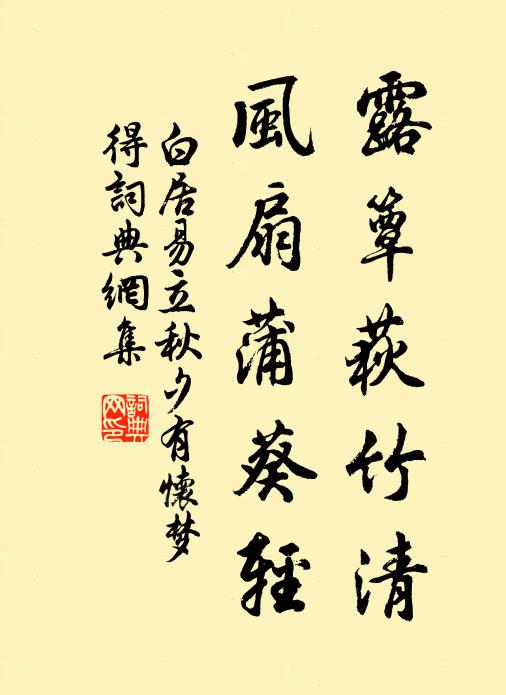 露簟萩竹清
風扇蒲葵輕
白居易立秋夕有懷梦
得詞典網集
詞典
网印